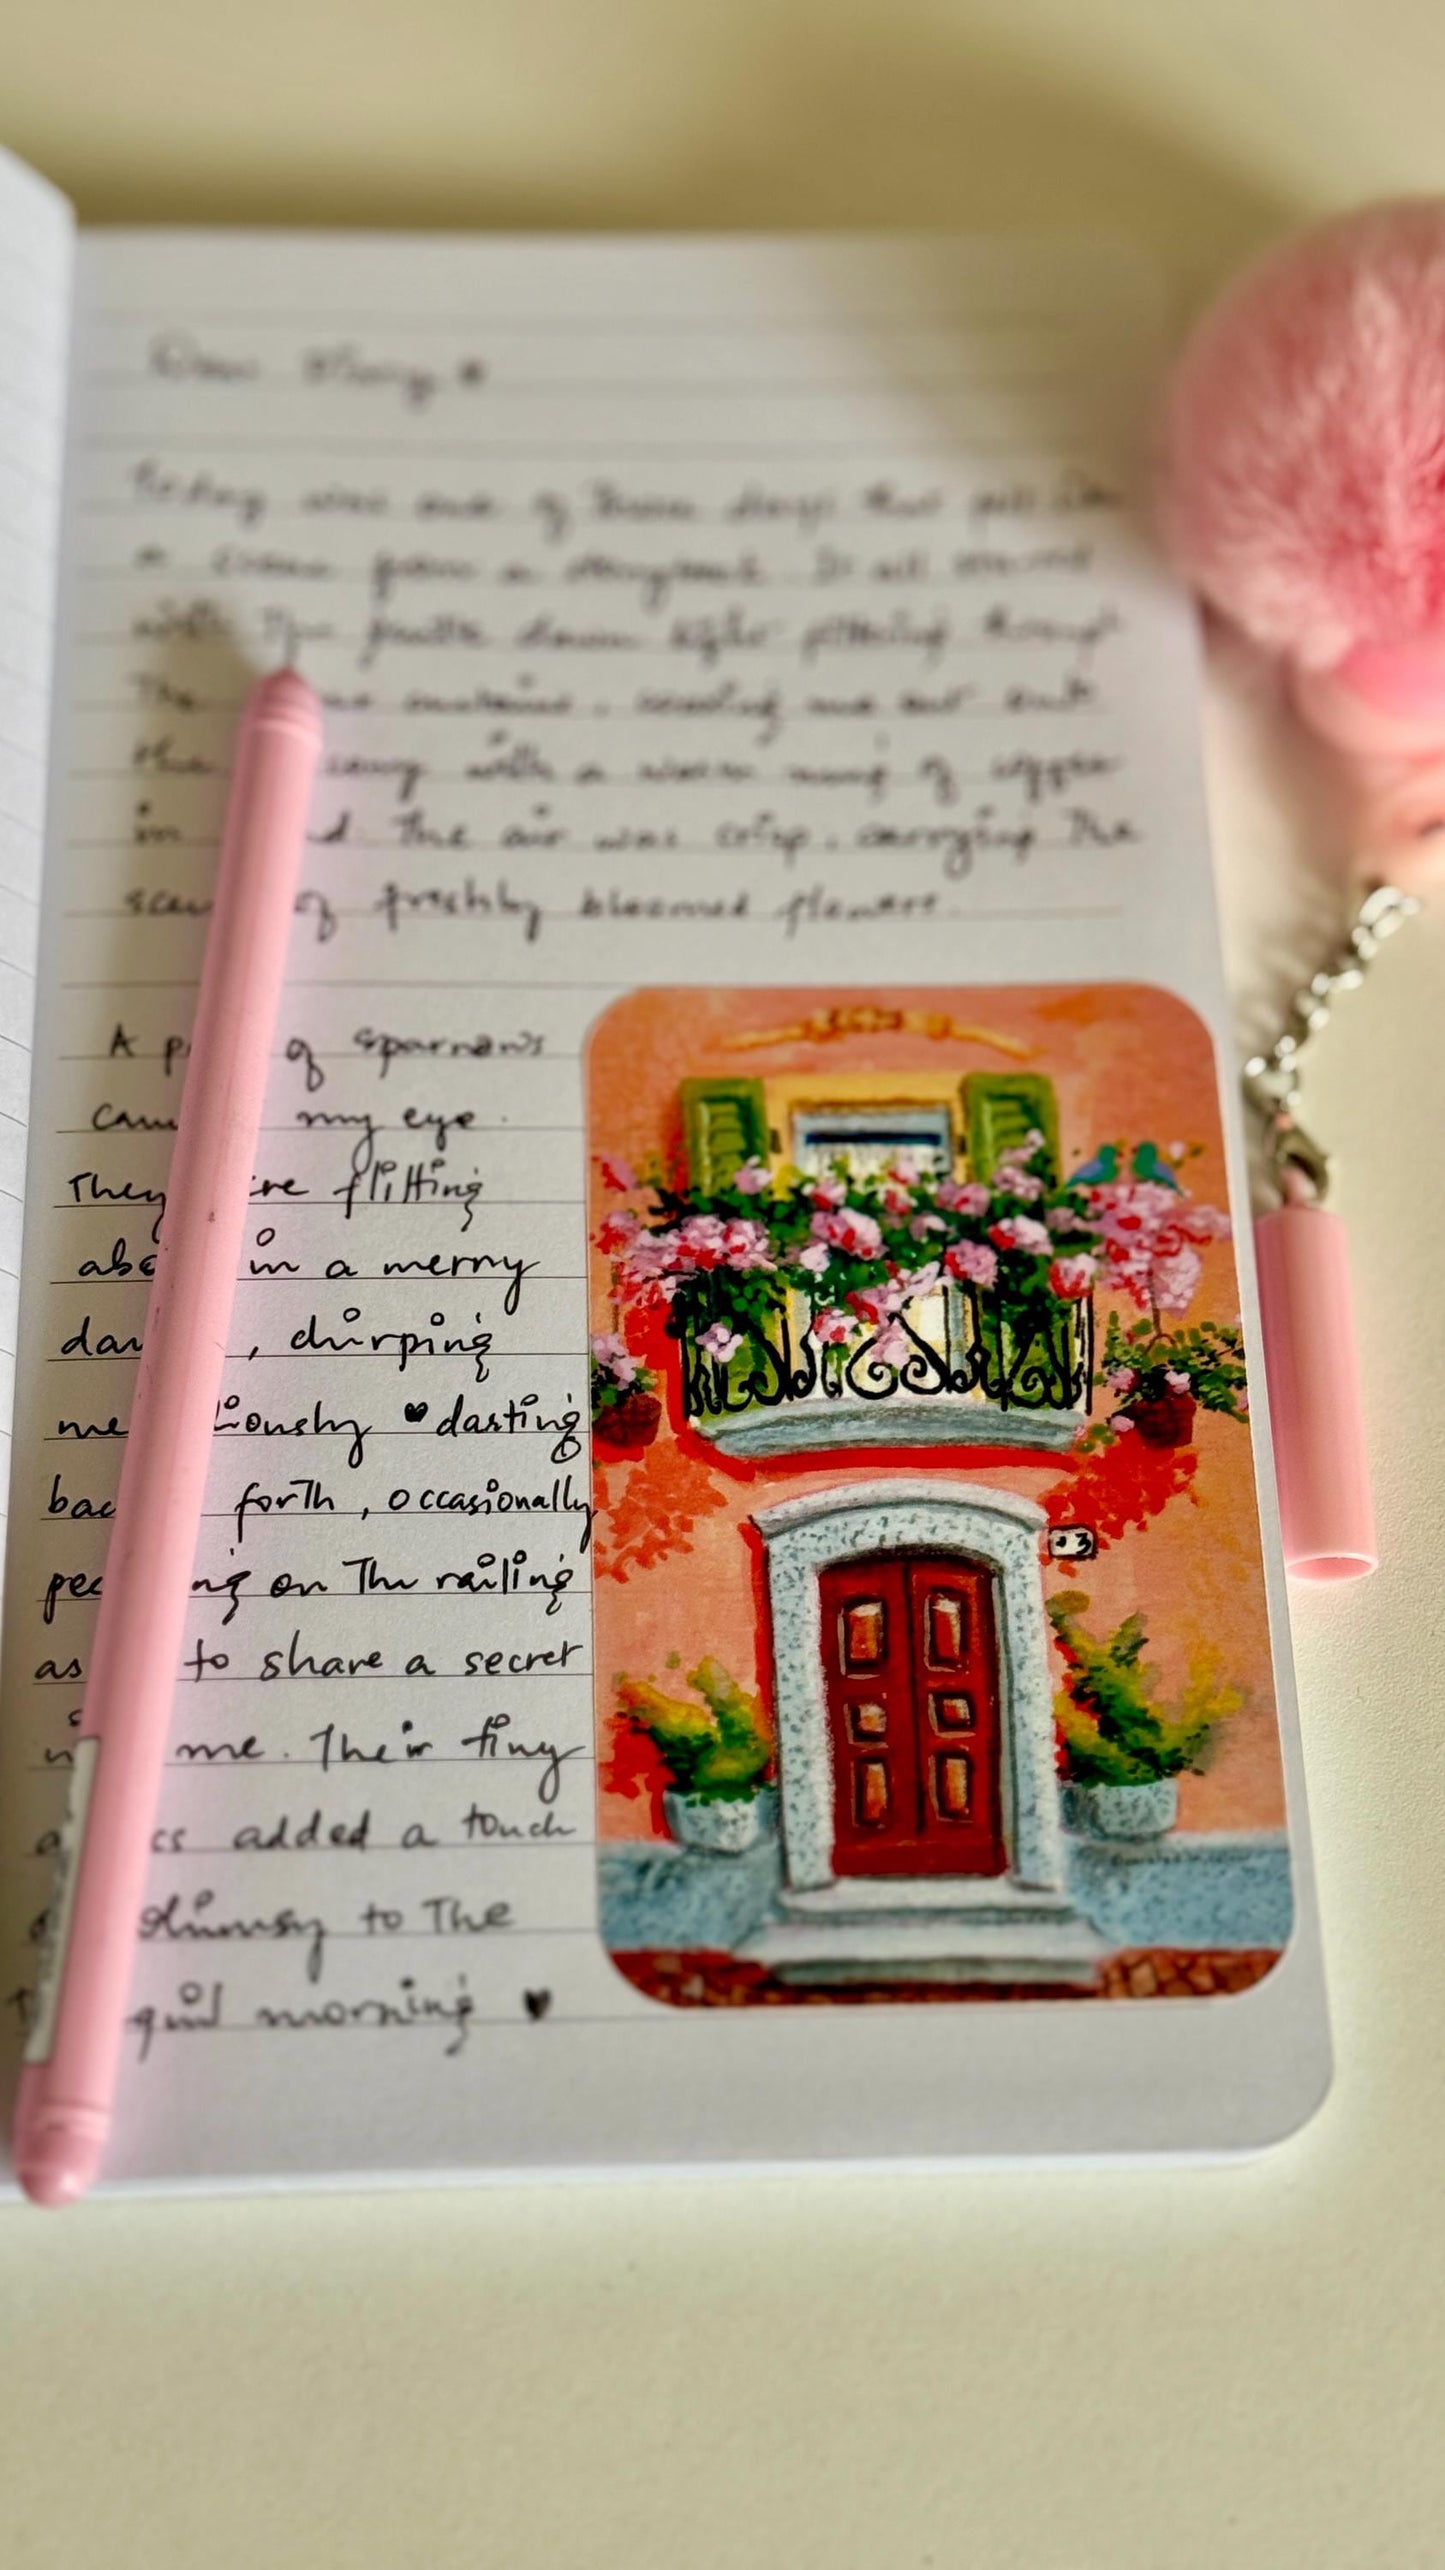 Dear Diary
Today was one of those days that felt like
a scene from a storybook. It all started
with The gentle dawn light filtering through
The curtains, coaxing me out
the with a warm mug of coffee
in The air was crisp, carrying The
of freshly bloomed flowers.
A of sparrows
my eye.
They flitting
in a merry
, chirping
♥ darting
forth, occasionally
on The railing
as to share a secret
me. Their tiny
added a touch
whimsy to The
morning ♥
3